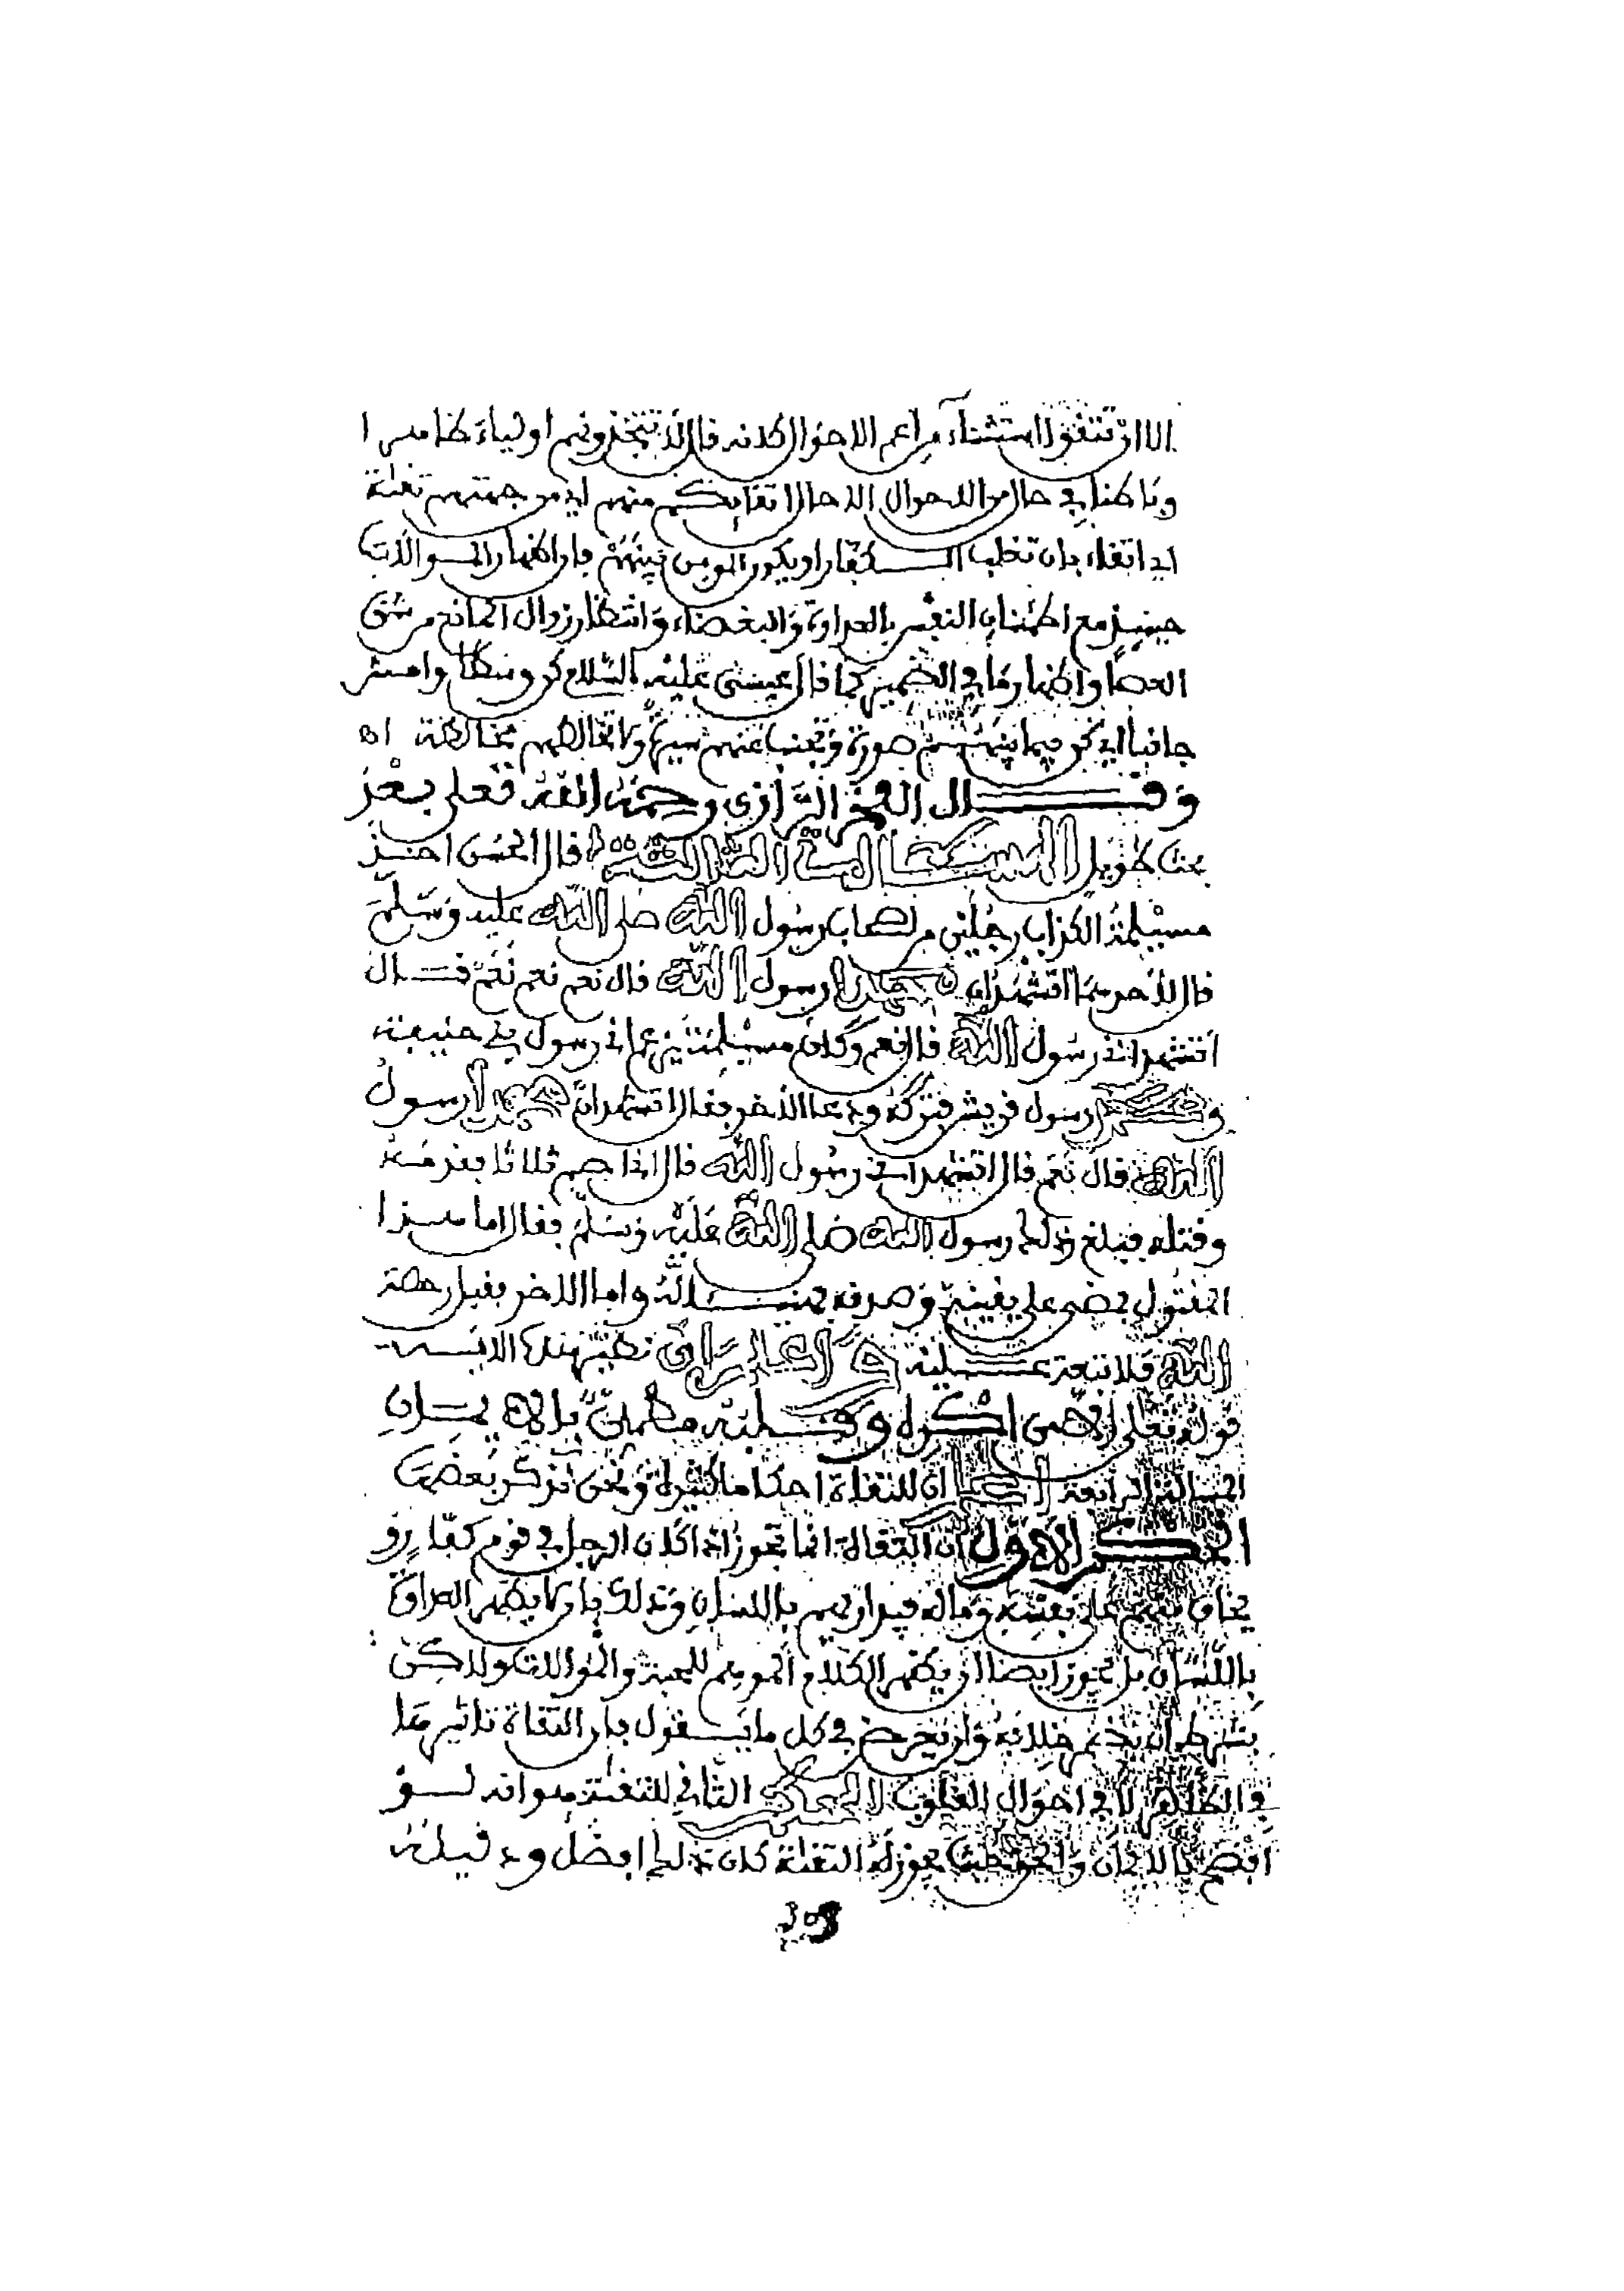 الا ان تتقوا استثناء من اعم الاحوال كانه قال لا تتخذونهم اولياء ظاهرا
وباطنا في حال من الاحوال الا حال اتقائكم منهم اي من جهتهم تقية
اي اتقاء بان تغلب الكفار او يكون المومن بينهم فان اظهار الموالات
حينئذ مع اطمئنان النفس بالعداوة والبغضاء وانتظار زوال المانع من شق
العصا واظهار ما في الضمير كما قال عيسى عليه السلام كن وسطا وامش
جانبا اي كن فيما بينهم صورة وتجنب عنهم سيرة ولا تخالطهم مخالطة اه
وقال الفخر الرازي رحمه الله تعلى بعد
بحث طويل المسئالة الثالثة قال الحسن اخذ
مسيلمة الكذاب رجلين من اصحاب رسول الله صلى الله عليه وسلم
قال لاحدهما اتشهد ان محمدا رسول الله قال نعم نعم نعم قال
اتشهد اني رسول الله قال نعم وكان مسيلمة يزعم انه رسول بني حنيفة
ومحمد رسول قريش فتركه ودعا الاخر فقال اتشهد ان محمدا رسول
الله قال نعم قال اتشهد اني رسول الله قال اني اصم ثلاثا فقدمه
وقتله فبلغ ذلك رسول الله صلى الله عليه وسلم فقال اما هذا
المقتول فمضى على يقينه وصدقه فهنيئا له واما الاخر فقبل رخصة
الله فلا تبعة عليه واعلم ان نظير هذه الاية
قوله تعلى الا من اكره وقلبه مطمئن بالايمان
المسالة الرابعة اعلم ان للتقاة احكاما كثيرة ونحن نذكر بعضها
الحكم الاول ان التقاة انما تجوز اذا كان الرجل في قوم كفار و
يخاف منهم على نفسه وماله فيداريهم باللسان وذلك بان لا يظهر العداوة
باللسان بل يجوز ايضا ان يظهر الكلام الموهم للمحبة والموالات ولاكن
بشرط ان يضمر خلافه وان يعرض في كل ما يقول فان التقاة تاثيرها
في الظاهر لا في احوال القلوب الحكم الثاني للتقية هو انه لو
افصح بالايمان والحق حيث يجوز له التقية كان ذلك افضل ودليله
308